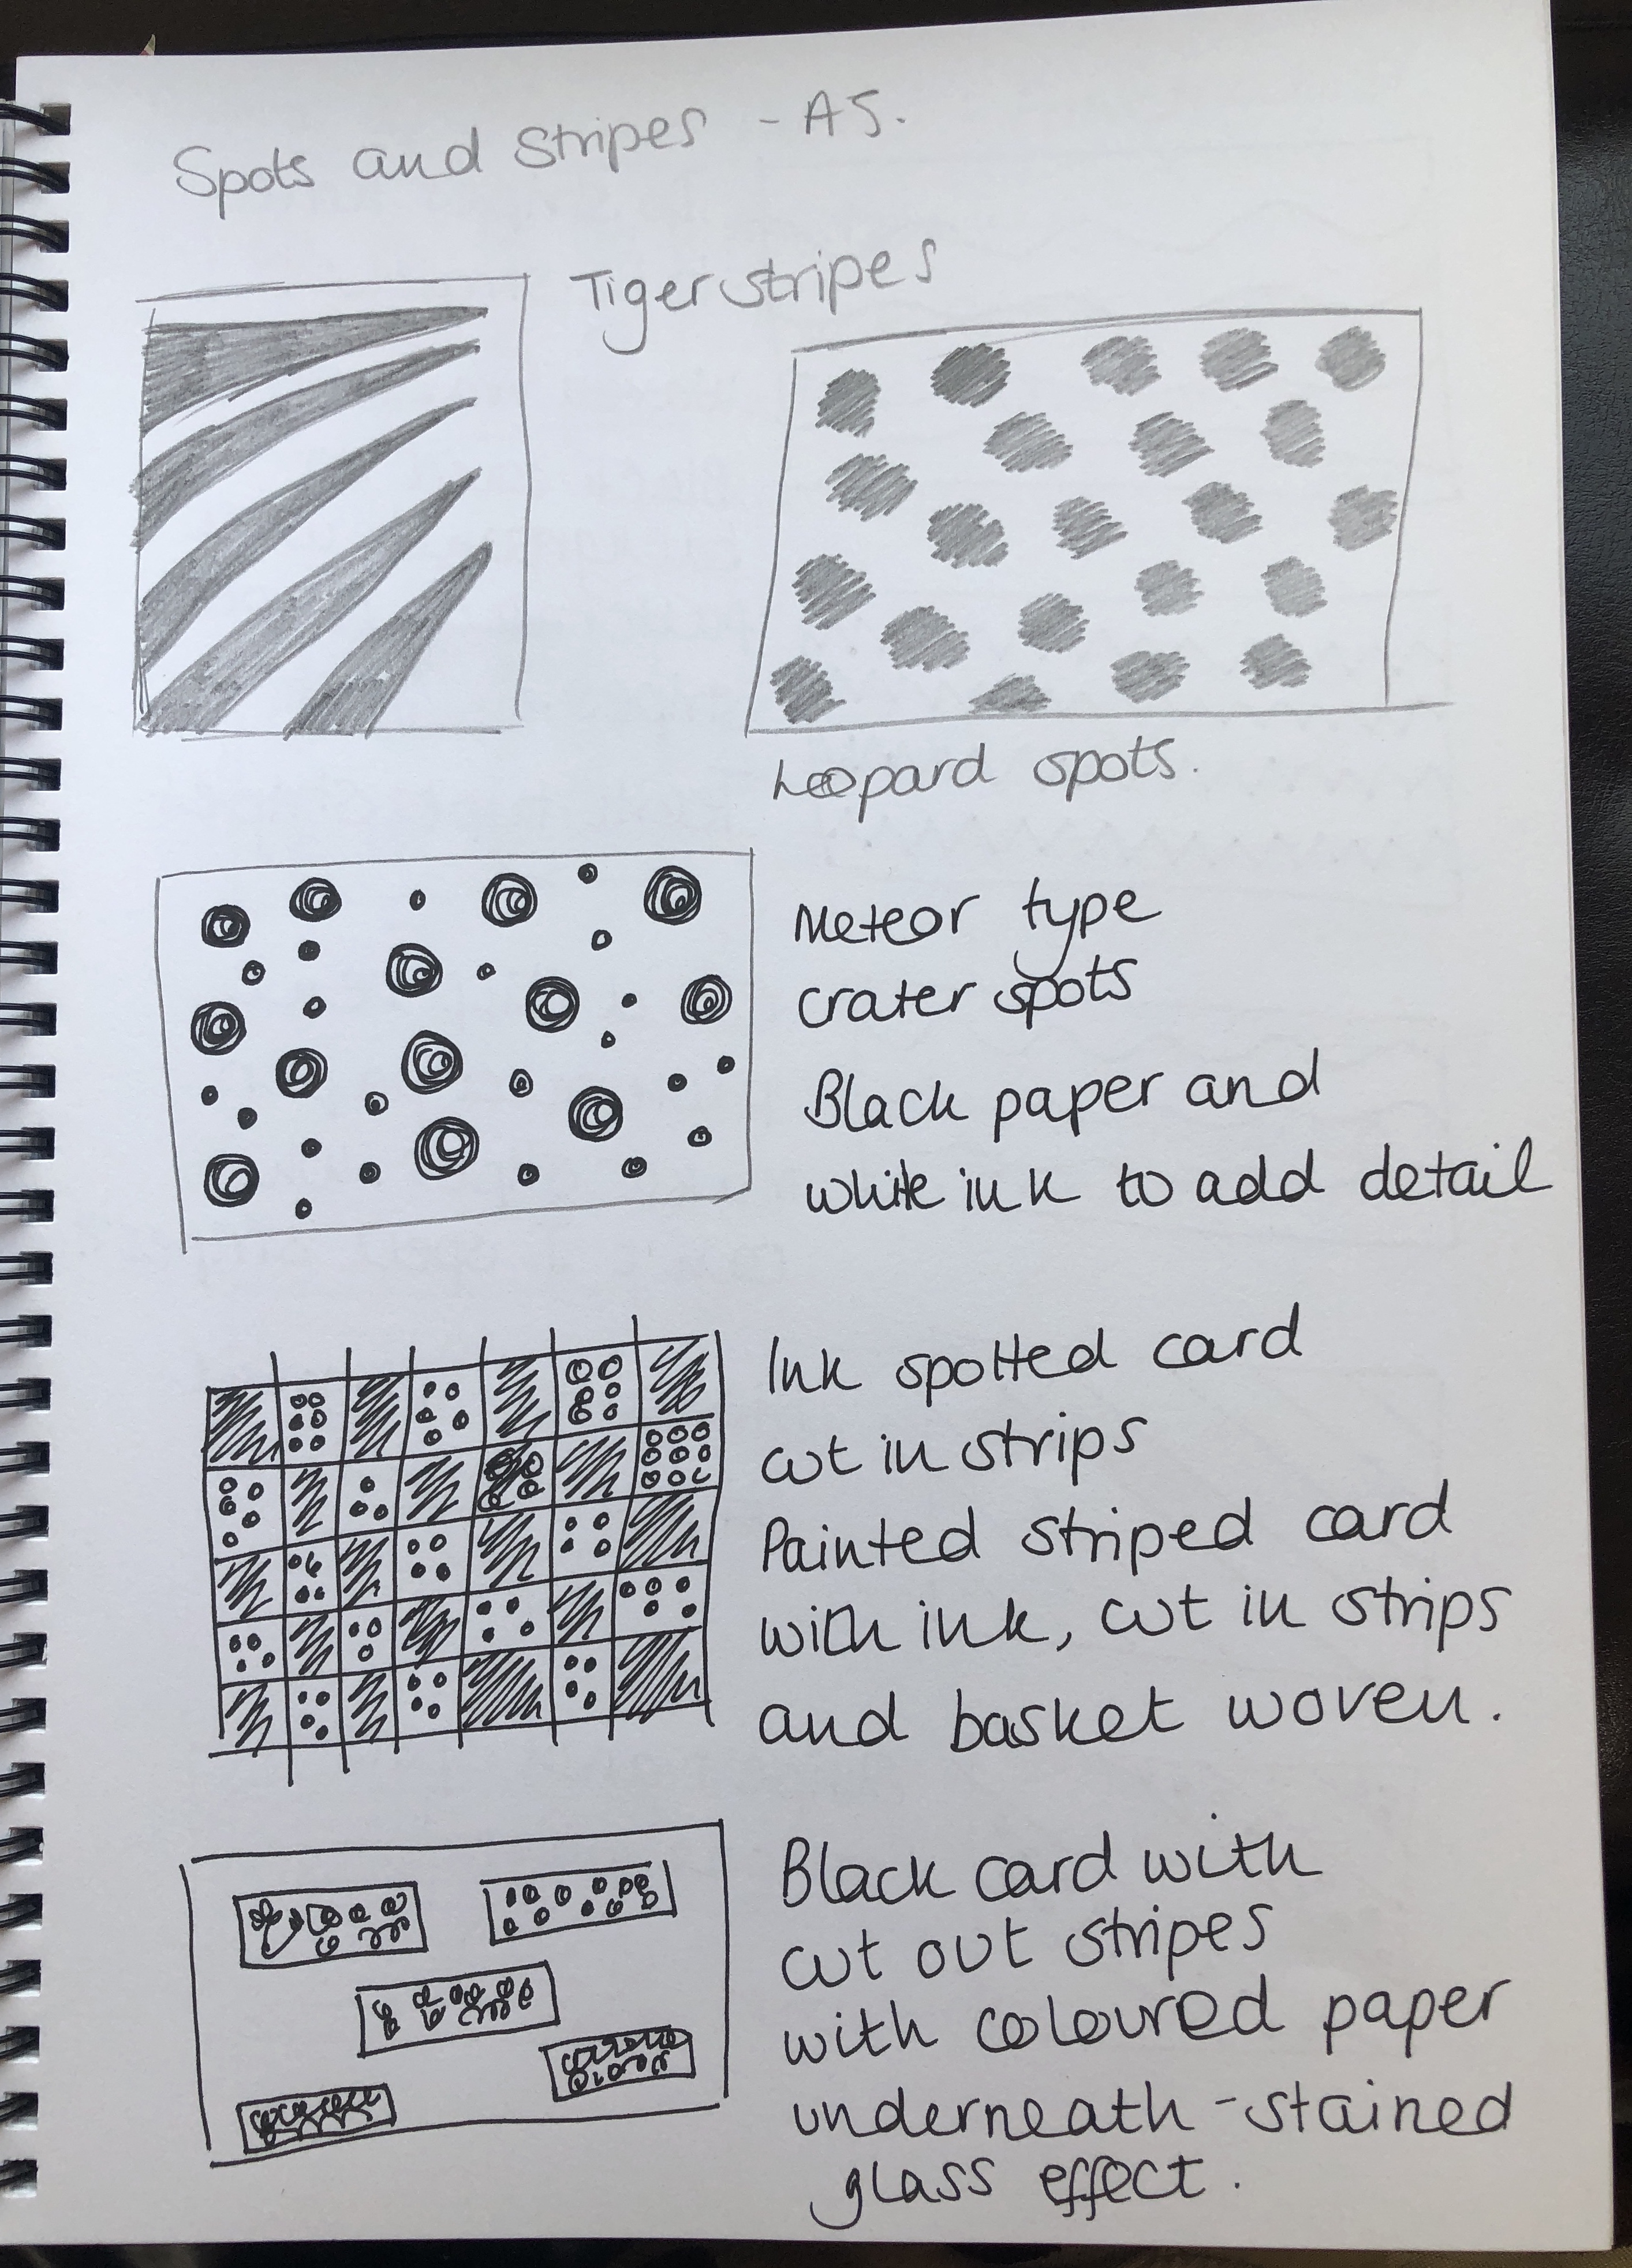 Spots and Stripes - A5.
Tiger stripes
Leopard spots.
Meteor type
crater spots
Black paper and
white ink to add detail
Ink spotted card
cut in strips
Painted striped card
with ink, cut in strips
and basket woven.
Black card with
cut out stripes
with coloured paper
underneath - stained
glass effect.